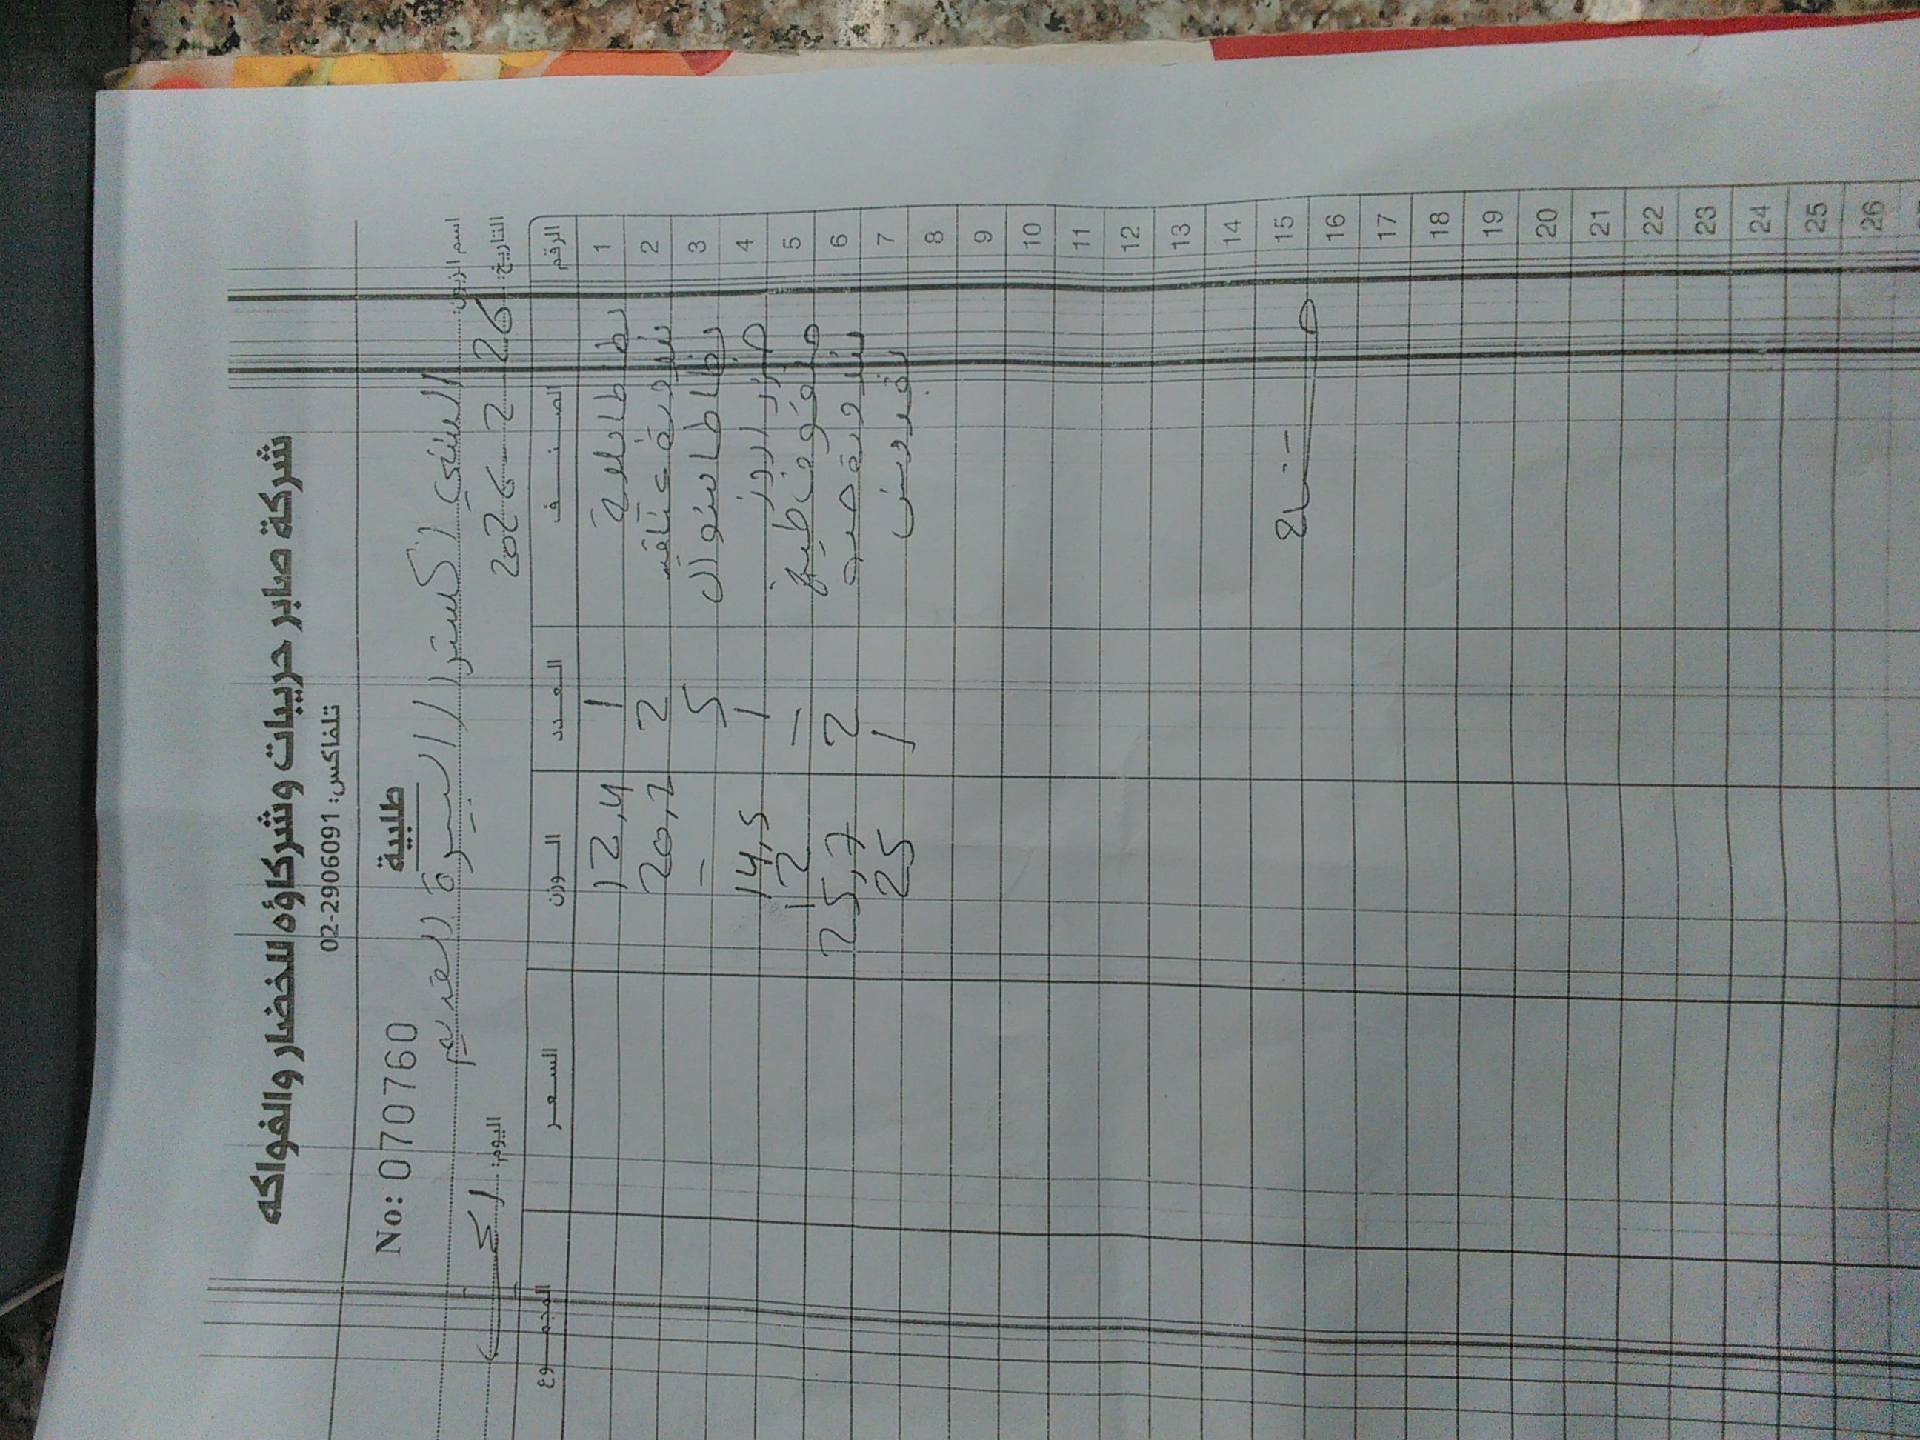 شركة صابر حريبات وشركاؤه للخضار والفواكه
تلفاكس: 02-2906091
طلبية
No: 070760
اسم الزبون: السني اكسترا البيرة القديم
التاريخ: 26-2-2026 اليوم:
الرقم الصنف العدد الوزن السعر المجموع
1 بطاطا 1 12,4
2 بندورة عناقيد 2 20,2
3 بطاطا 5 -
4 جزر 1 14,5
5 ملفوف 1 12
6 بندورة 2 25,7
7 بقدونس 1 25
8
9
10
11
12
13
14
15
16
17
18
19
20
21
22
23
24
25
26